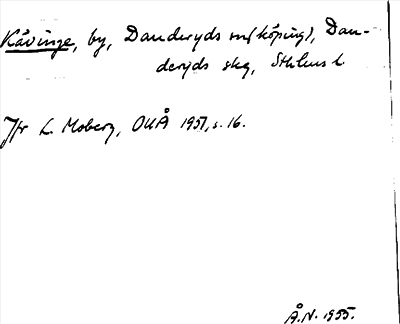 Kävinge, by, Danderyds sn (köping), Dan-
deryds skg, Sthlms l
Jfr L. Moberg, OUÅ 1951, s. 16.
Å.N. 1955.